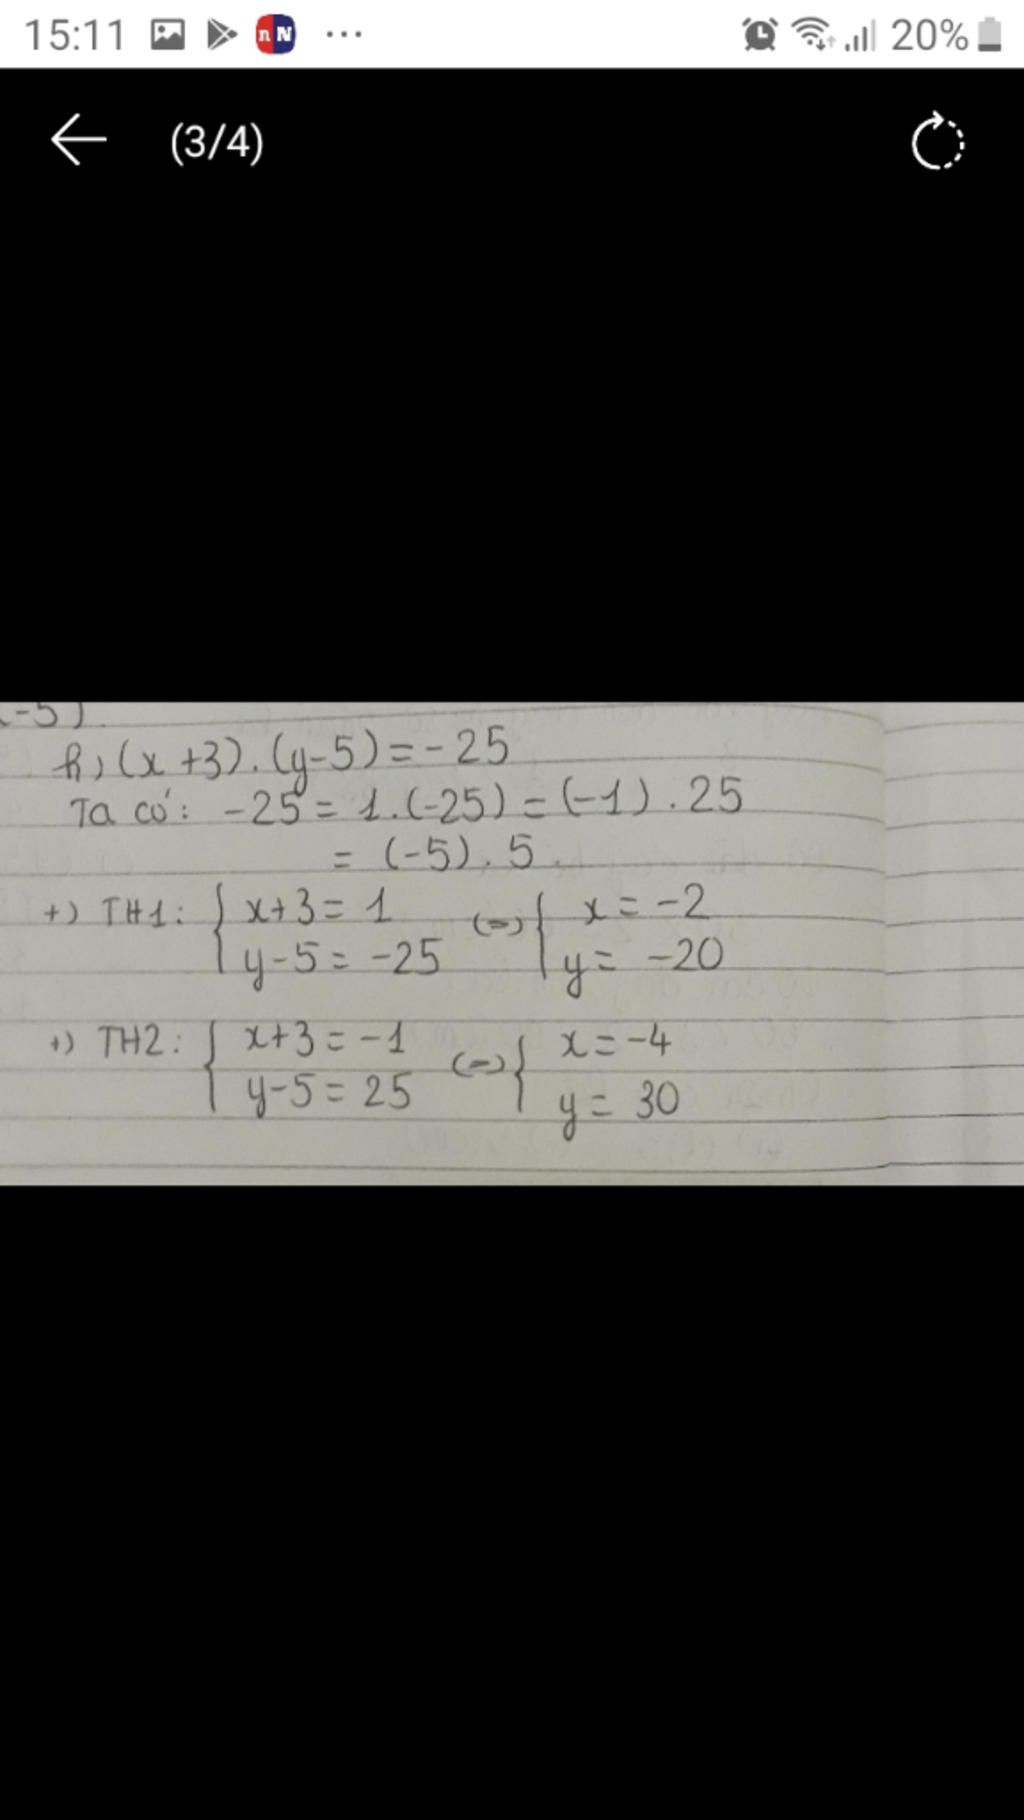 15:11 20%
(3/4)
-5)
h) (x+3).(y-5)=-25
Ta có: -25 = 1.(-25) = (-1).25
= (-5).5.
+) TH1: { x+3 = 1 (=) { x = -2
y-5 = -25 y = -20
+) TH2: { x+3 = -1 (=) { x = -4
y-5 = 25 y = 30